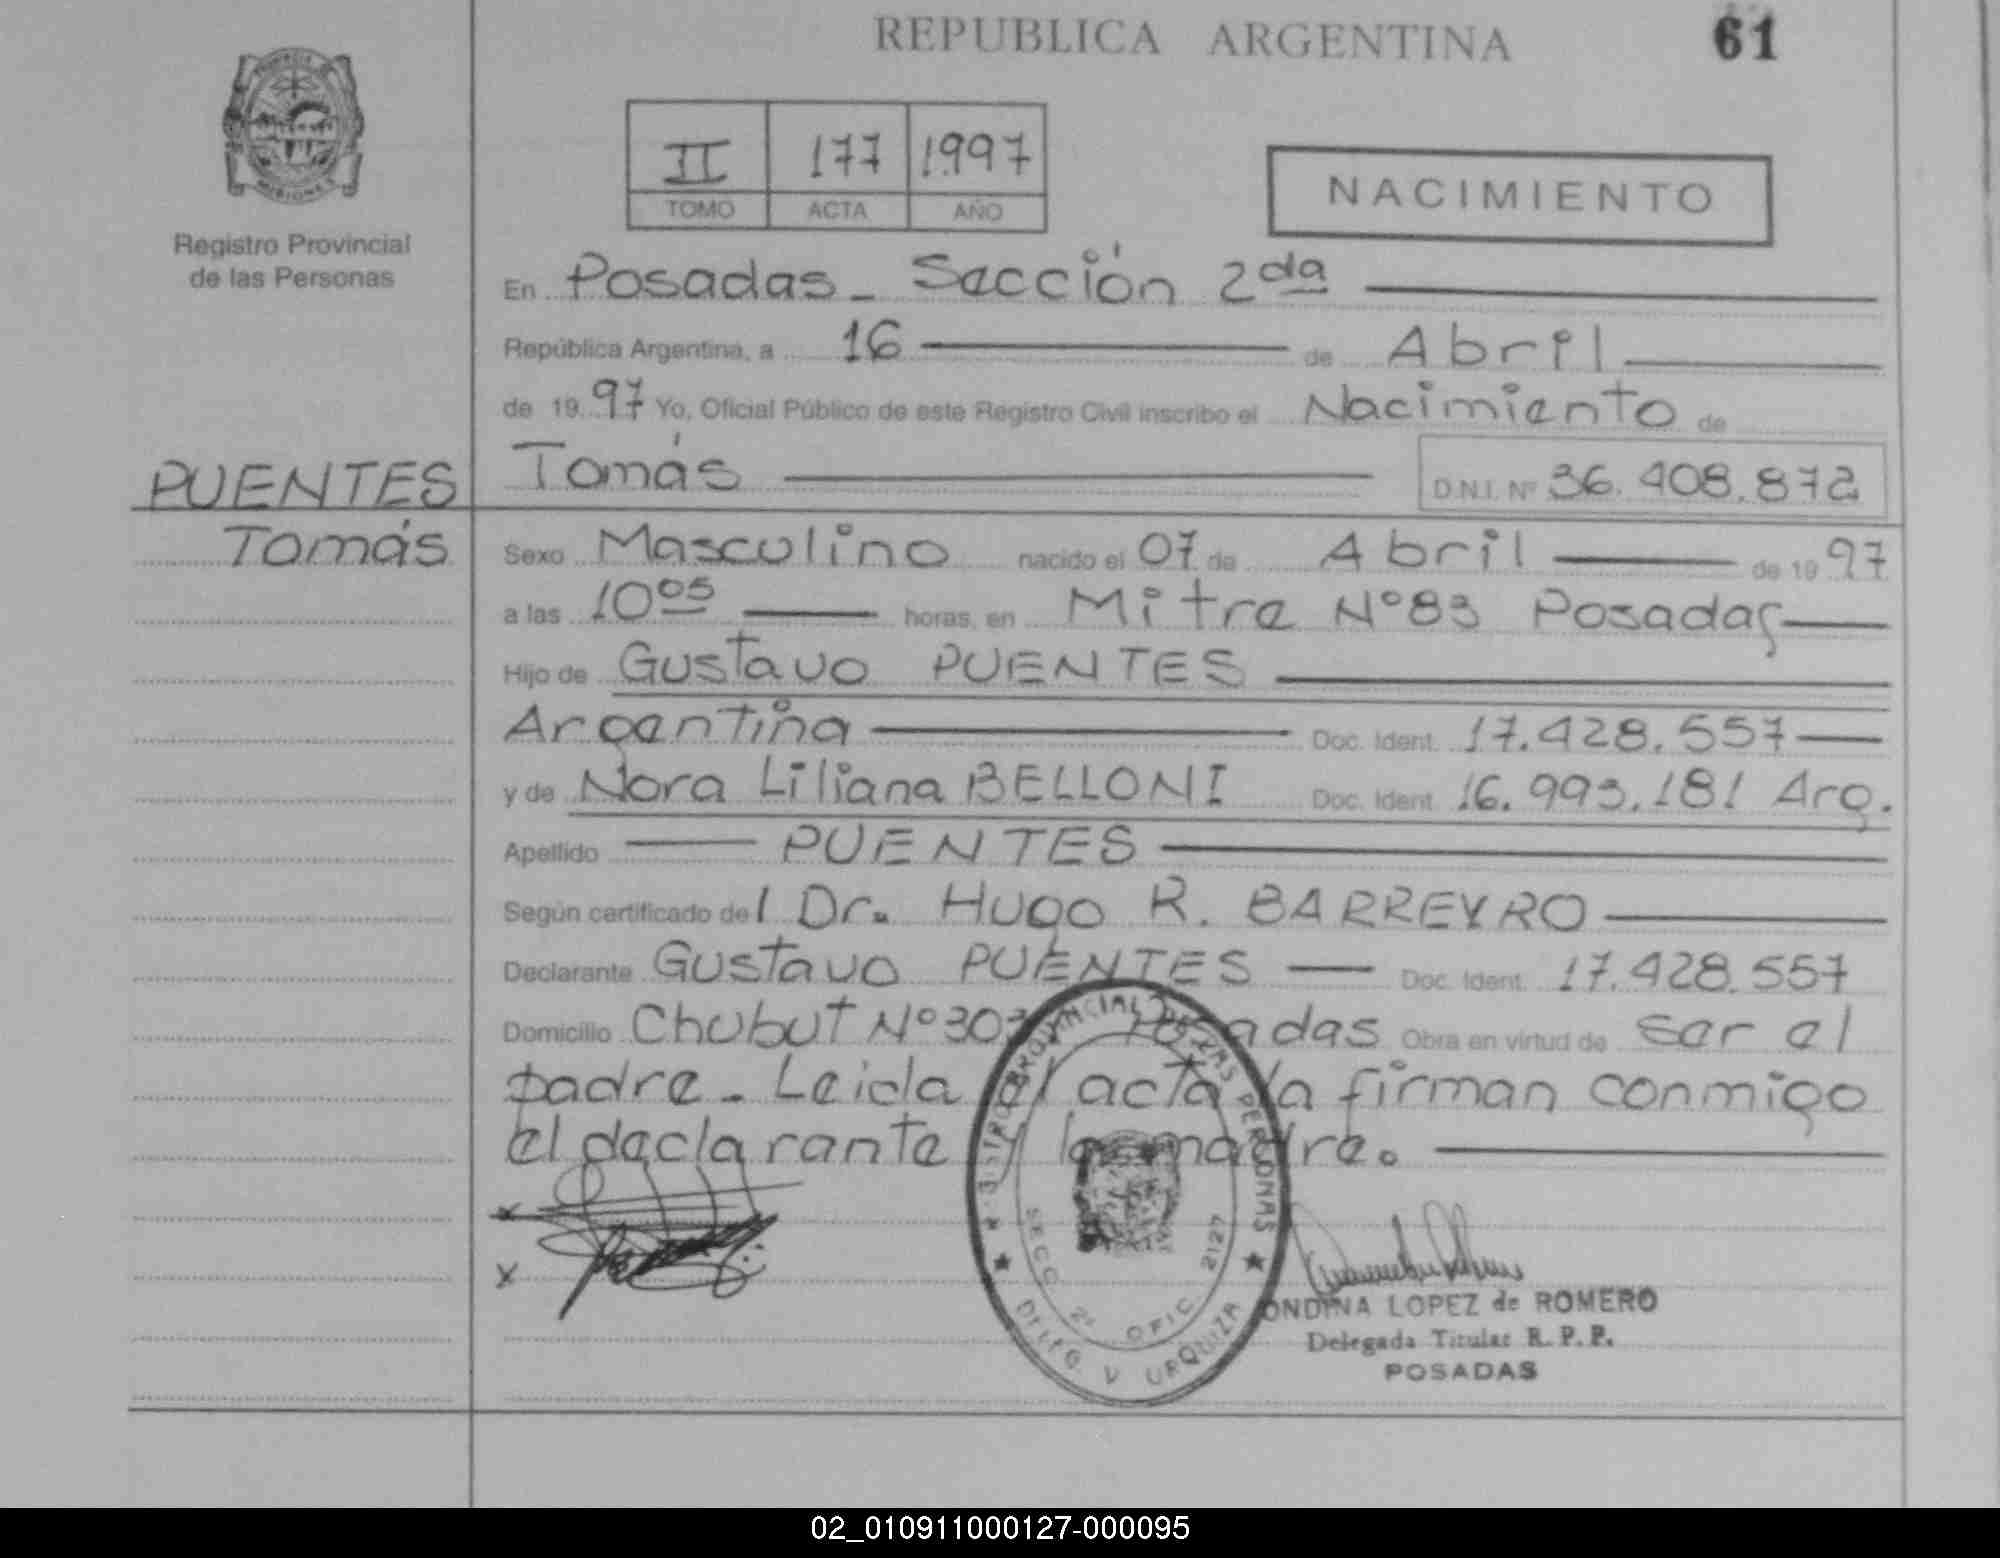 REPUBLICA ARGENTINA 61
PROVINCIA DE MISIONES
Registro Provincial
de las Personas
II 177 1997
TOMO ACTA AÑO
NACIMIENTO
En Posadas - Sección 2da
República Argentina, a 16 de Abril
de 1997 Yo, Oficial Público de este Registro Civil inscribo el Nacimiento de
Tomás D.N.I. Nº 36.408.872
PUENTES
Tomás
Sexo Masculino nacido el 07 de Abril de 1997
a las 10 05 horas, en Mitre Nº 83 Posadas
Hijo de Gustavo PUENTES
Argentina Doc. Ident. 17.428.557
y de Nora Liliana BELLONI Doc. Ident. 16.993.181 Arg.
Apellido PUENTES
Según certificado del Dr. Hugo R. BARREYRO
Declarante Gustavo PUENTES Doc. Ident. 17.428.557
Domicilio Chubut Nº Posadas Obra en virtud de ser el
padre. Leída el acta la firman conmigo
el declarante y la madre.
x
x
REGISTRO PROVINCIAL DE LAS PERSONAS
SECC. 2ª OFIC. 2127
DELEG. V URQUIZA
ONDINA LOPEZ de ROMERO
Delegada Titular R. P. P.
POSADAS
02_010911000127-000095